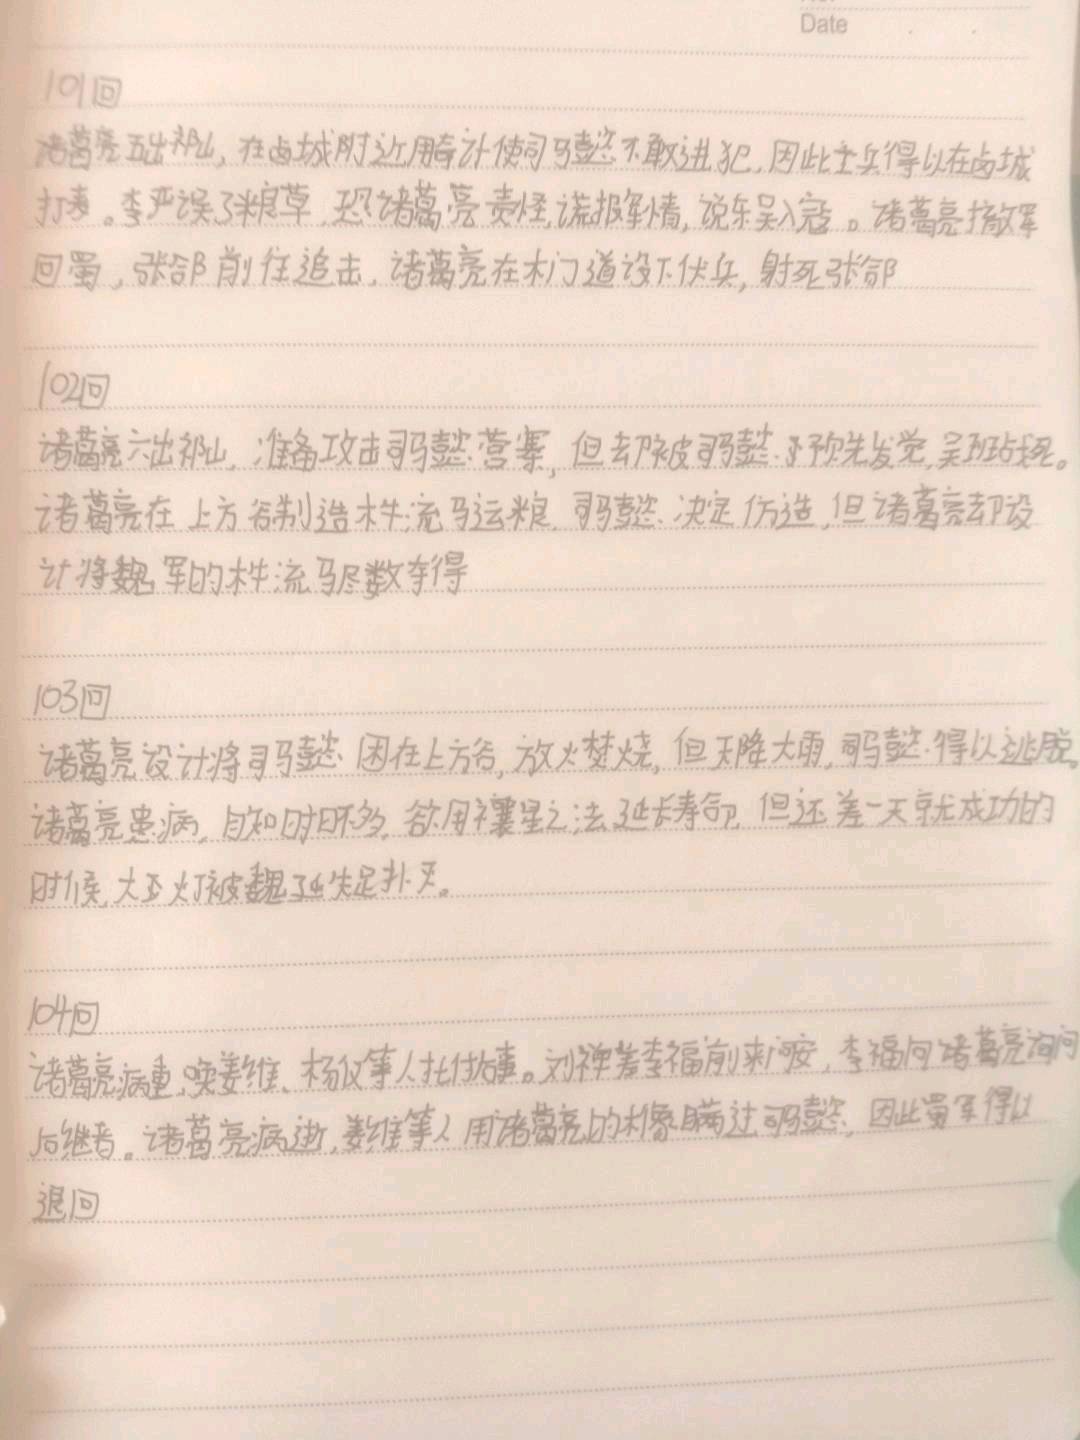 Date
101回
诸葛亮五出祁山，在卤城附近用奇计使司马懿不敢进犯，因此士兵得以在卤城
打麦。李严误了粮草，恐诸葛亮责怪，谎报军情，说东吴入寇。诸葛亮撤军
回蜀，张郃前往追击，诸葛亮在木门道设下伏兵，射死张郃
102回
诸葛亮六出祁山，准备攻击司马懿营寨，但却被司马懿预先发觉，吴班战死。
诸葛亮在上方谷制造木牛流马运粮，司马懿决定仿造，但诸葛亮却设
计将魏军的木牛流马尽数夺得
103回
诸葛亮设计将司马懿困在上方谷，放火焚烧，但天降大雨，司马懿得以逃脱。
诸葛亮患病，自知时日不多，欲用禳星之法延长寿命，但还差一天就成功的
时候，大灯被魏延失足扑灭。
104回
诸葛亮病重，唤姜维、杨仪等人托付后事。刘禅差李福前来问安，李福向诸葛亮询问
后继者。诸葛亮病逝，姜维等人用诸葛亮的木像瞒过司马懿，因此蜀军得以
退回